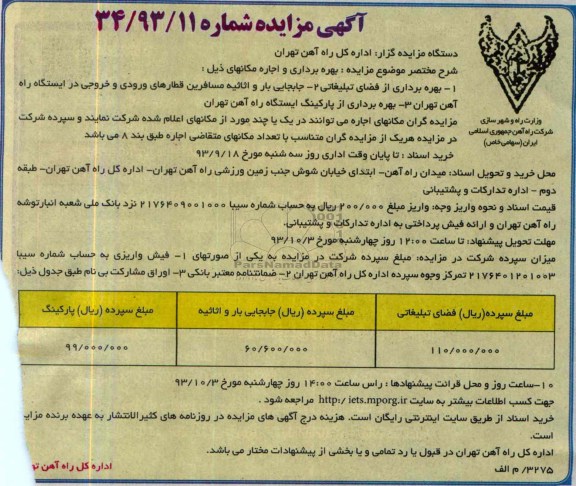 آگهی مزایده شماره ۳۴/۹۳/۱۱
وزارت راه و شهرسازی
شرکت راه آهن جمهوری اسلامی
ایران(سهامی خاص)
دستگاه مزایده گزار: اداره کل راه آهن تهران
شرح مختصر موضوع مزایده : بهره برداری و اجاره مکانهای ذیل :
۱- بهره برداری از فضای تبلیغاتی ۲- جابجایی بار و اثاثیه مسافرین قطارهای ورودی و خروجی در ایستگاه راه
آهن تهران ۳- بهره برداری از پارکینگ ایستگاه راه آهن تهران
مزایده گران مکانهای اجاره می توانند در یک یا چند مورد از مکانهای اعلام شده شرکت نمایند و سپرده شرکت
در مزایده هریک از مزایده گران متناسب با تعداد مکانهای متقاضی اجاره طبق بند ۸ می باشد
خرید اسناد : تا پایان وقت اداری روز سه شنبه مورخ ۹۳/۹/۱۸
محل خرید و تحویل اسناد: میدان راه آهن- ابتدای خیابان شوش جنب زمین ورزشی راه آهن تهران- اداره کل راه آهن تهران- طبقه
دوم - اداره تدارکات و پشتیبانی
قیمت اسناد و نحوه واریز وجه: واریز مبلغ ۲۰۰/۰۰۰ ریال به حساب شماره سیبا ۲۱۷۶۴۰۹۰۰۱۰۰۰ نزد بانک ملی شعبه انبارتوشه
راه آهن تهران و ارائه فیش پرداختی به اداره تدارکات و پشتیبانی.
مهلت تحویل پیشنهاد: تا ساعت ۱۲:۰۰ روز چهارشنبه مورخ ۹۳/۱۰/۳
میزان سپرده شرکت در مزایده: مبلغ سپرده شرکت در مزایده به یکی از صورتهای ۱- فیش واریزی به حساب شماره سیبا
۲۱۷۶۴۰۱۲۰۱۰۰۳ تمرکز وجوه سپرده اداره کل راه آهن تهران ۲- ضمانتنامه معتبر بانکی ۳- اوراق مشارکت بی نام طبق جدول ذیل:
ParsNamadData
مبلغ سپرده(ریال) فضای تبلیغاتی مبلغ سپرده (ریال) جابجایی بار و اثاثیه مبلغ سپرده (ریال) پارکینگ
۱۱۰/۰۰۰/۰۰۰ ۶۰/۶۰۰/۰۰۰ ۹۹/۰۰۰/۰۰۰
۱۰-ساعت روز و محل قرائت پیشنهادها : راس ساعت ۱۴:۰۰ روز چهارشنبه مورخ ۹۳/۱۰/۳
جهت کسب اطلاعات بیشتر به سایت http:/ iets.mporg.ir مراجعه شود .
خرید اسناد از طریق سایت اینترنتی رایگان است. هزینه درج آگهی های مزایده در روزنامه های کثیرالانتشار به عهده برنده مزای
است.
اداره کل راه آهن تهران در قبول یا رد تمامی و یا بخشی از پیشنهادات مختار می باشد.
۳۲۷۵/ م الف
اداره کل راه آهن ته